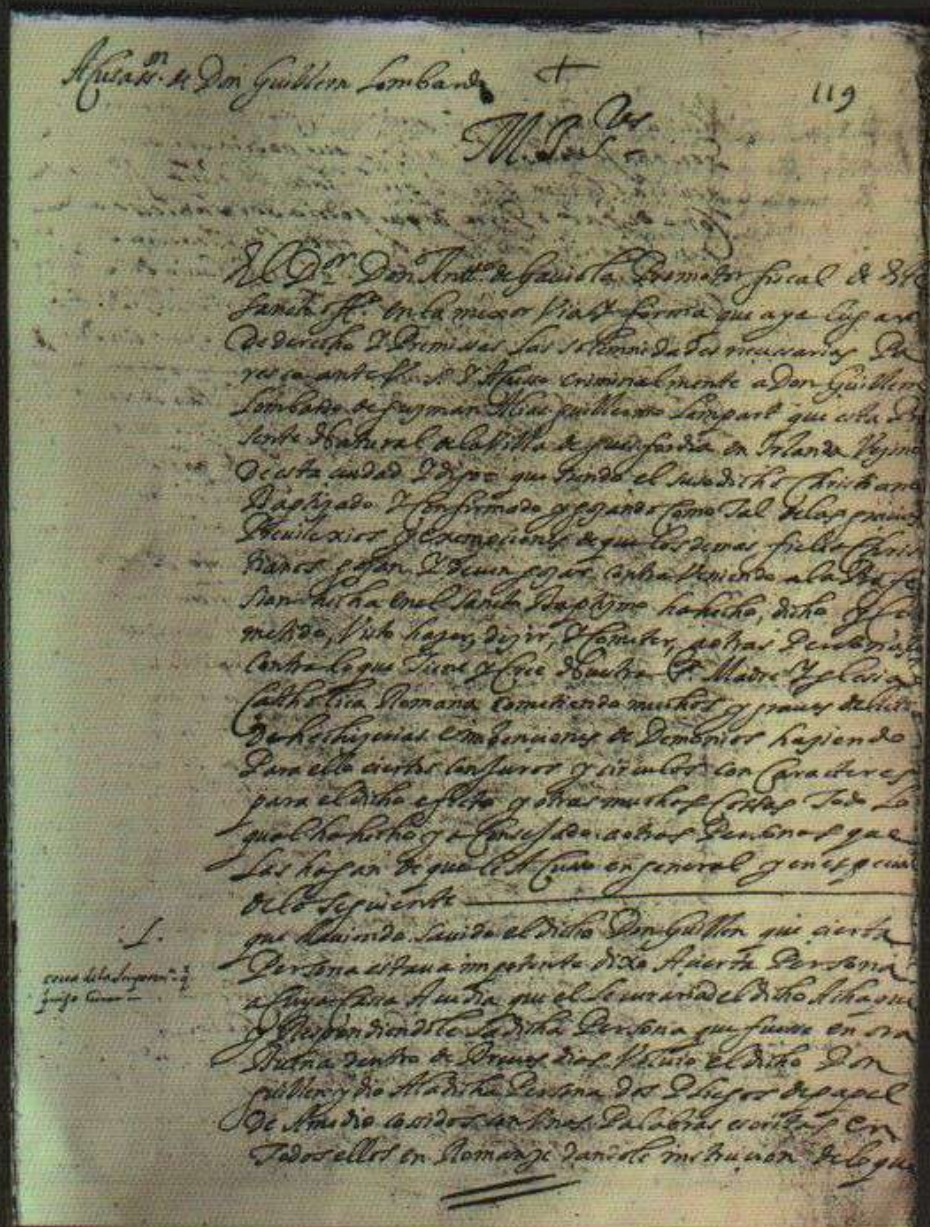 Acusaon. de Don Guillen Lombardo
+
119
M. P. Ses
El Dor. Don Antto. de Gaviola Promotor fiscal de este
sancto offo. en la mexor via y forma que aya lugar
de derecho y Premissas las solemnidades necessarias Pa
resco ante V. Sa. y Acuso criminalmente a Don Guillen
Lombardo de guzman Alias guillermo Lampart que esta Pre
sente Natural de la Villa de guesfordia en Irlanda Vezino
de esta ciudad y digo que siendo el susodicho christiano
Baptizado y confirmado y gozando como tal de las gracias
Previlexios y exempciones de que los demas fieles chris
tianos gozan y deven gozar contraveniendo a la Profe
sion hecha en el sancto Baptismo ha hecho, dicho y co
metido, visto hazer, dezir, y cometer, a otras Personas
contra lo que tiene y cree Nuestra Sa. Madre Yglesia
Catholica Romana cometiendo muchos y graves delitos
de hechizerias e imbocaciones de Demonios haziendo
Para ello ciertos conjuros y circulos con Caracteres
para el dicho efecto y otras muchas cossas todo lo
qual ha hecho y aconsejado a otras Personas que
las hagan de que le Acuso en general y en especial
de lo siguiente
1.
que haviendo savido el dicho Don Guillen que cierta
Persona estava impotente dixo A cierta Persona
a cuya cassa Acudia que el le curaria del dicho Achaque
y Respondiendole la dicha Persona que fuesse en ora
Buena dentro de Breves dias Volvio el dicho Don
guillen y dio A la dicha Persona dos Pliegos de papel
de A medio cossidos con unas Palabras escritas en
todos ellos en Romanze dandole instrucion de lo que